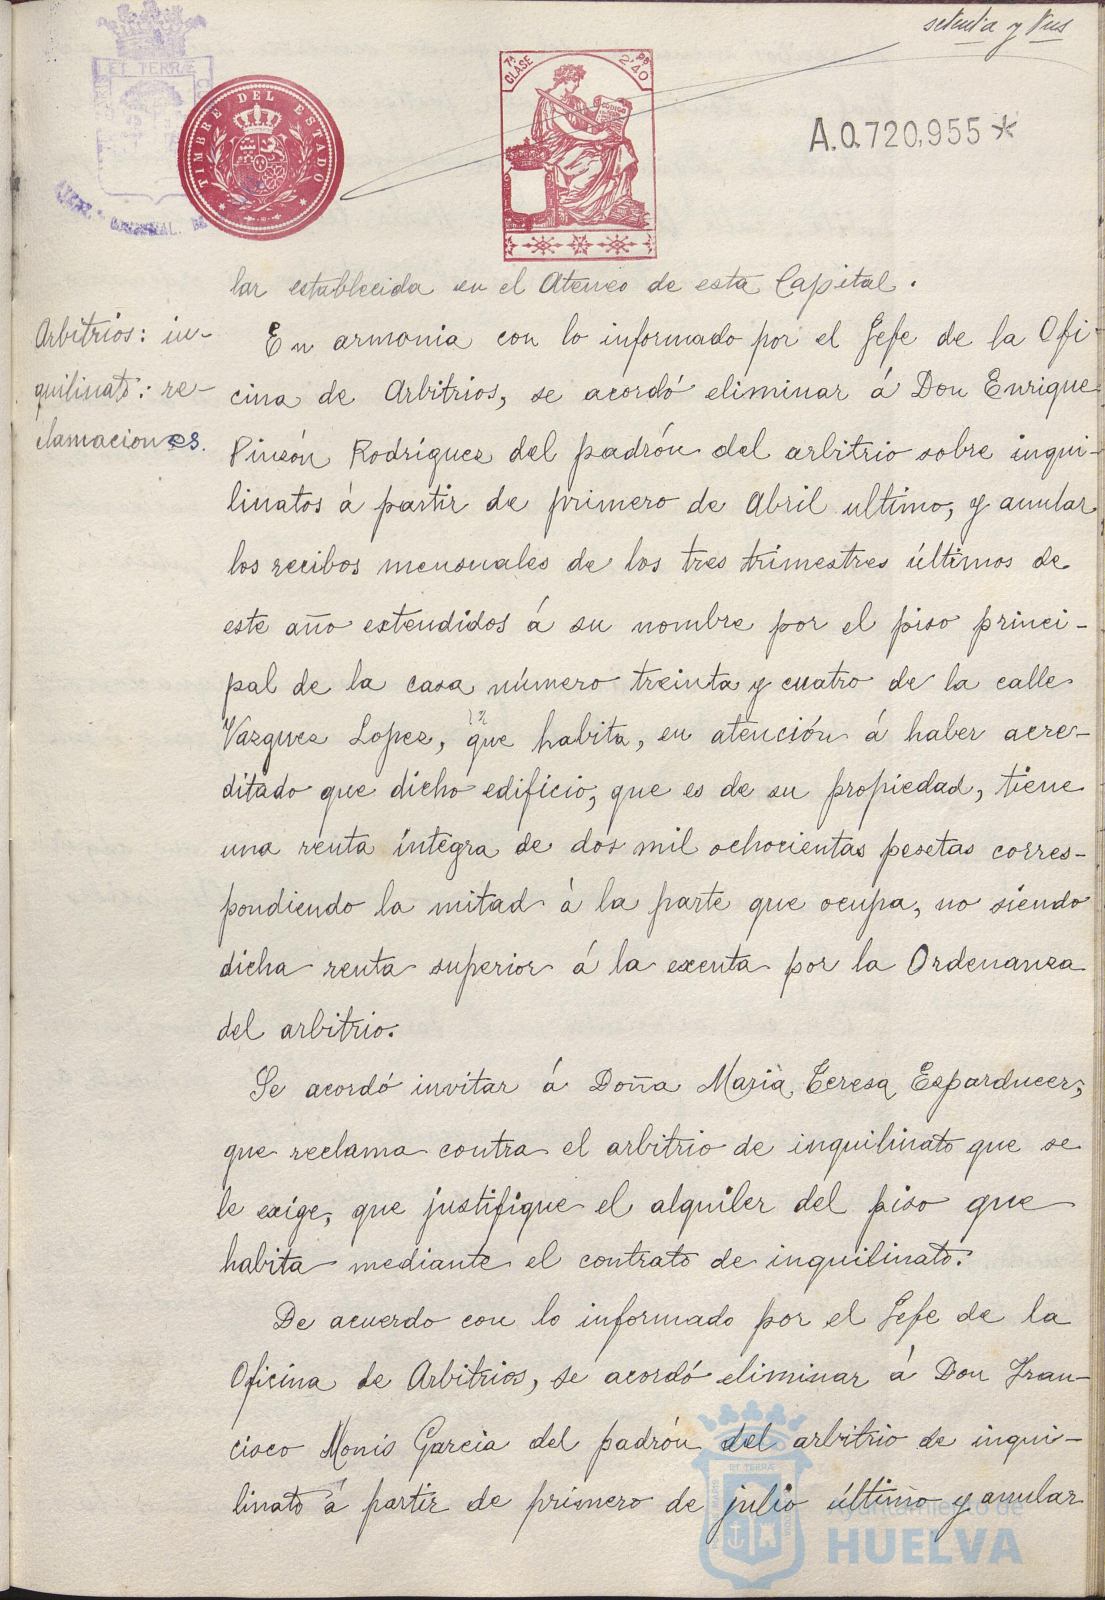 setenta y tres
ET TERRÆ
TIMBRE DEL ESTADO
7ª CLASE
Ps 2,40
CODIGO
A.0.720,955*
lar establecida en el Ateneo de esta Capital.
Arbitrios: in-
quilinato: re-
clamaciones.
En armonia con lo informado por el Jefe de la Ofi-
cina de Arbitrios, se acordó eliminar á Don Enrique
Pinzón Rodríguez del padrón del arbitrio sobre inqui-
linatos á partir de primero de Abril ultimo, y anular
los recibos mensuales de los tres trimestres últimos de
este año extendidos á su nombre por el piso princi-
pal de la casa número treinta y cuatro de la calle
Vazquez Lopez, que habita, en atención á haber acre-
ditado que dicho edificio, que es de su propiedad, tiene
una renta íntegra de dos mil ochocientas pesetas corres-
pondiendo la mitad á la parte que ocupa, no siendo
dicha renta superior á la exenta por la Ordenanza
del arbitrio.
Se acordó invitar á Doña Maria Teresa Esparducer,
que reclama contra el arbitrio de inquilinato que se
le exige, que justifique el alquiler del piso que
habita mediante el contrato de inquilinato.
De acuerdo con lo informado por el Jefe de la
Oficina de Arbitrios, se acordó eliminar á Don Fran-
cisco Monis Garcia del padrón del arbitrio de inqui-
linato á partir de primero de julio último y anular
Ayuntamiento de
HUELVA